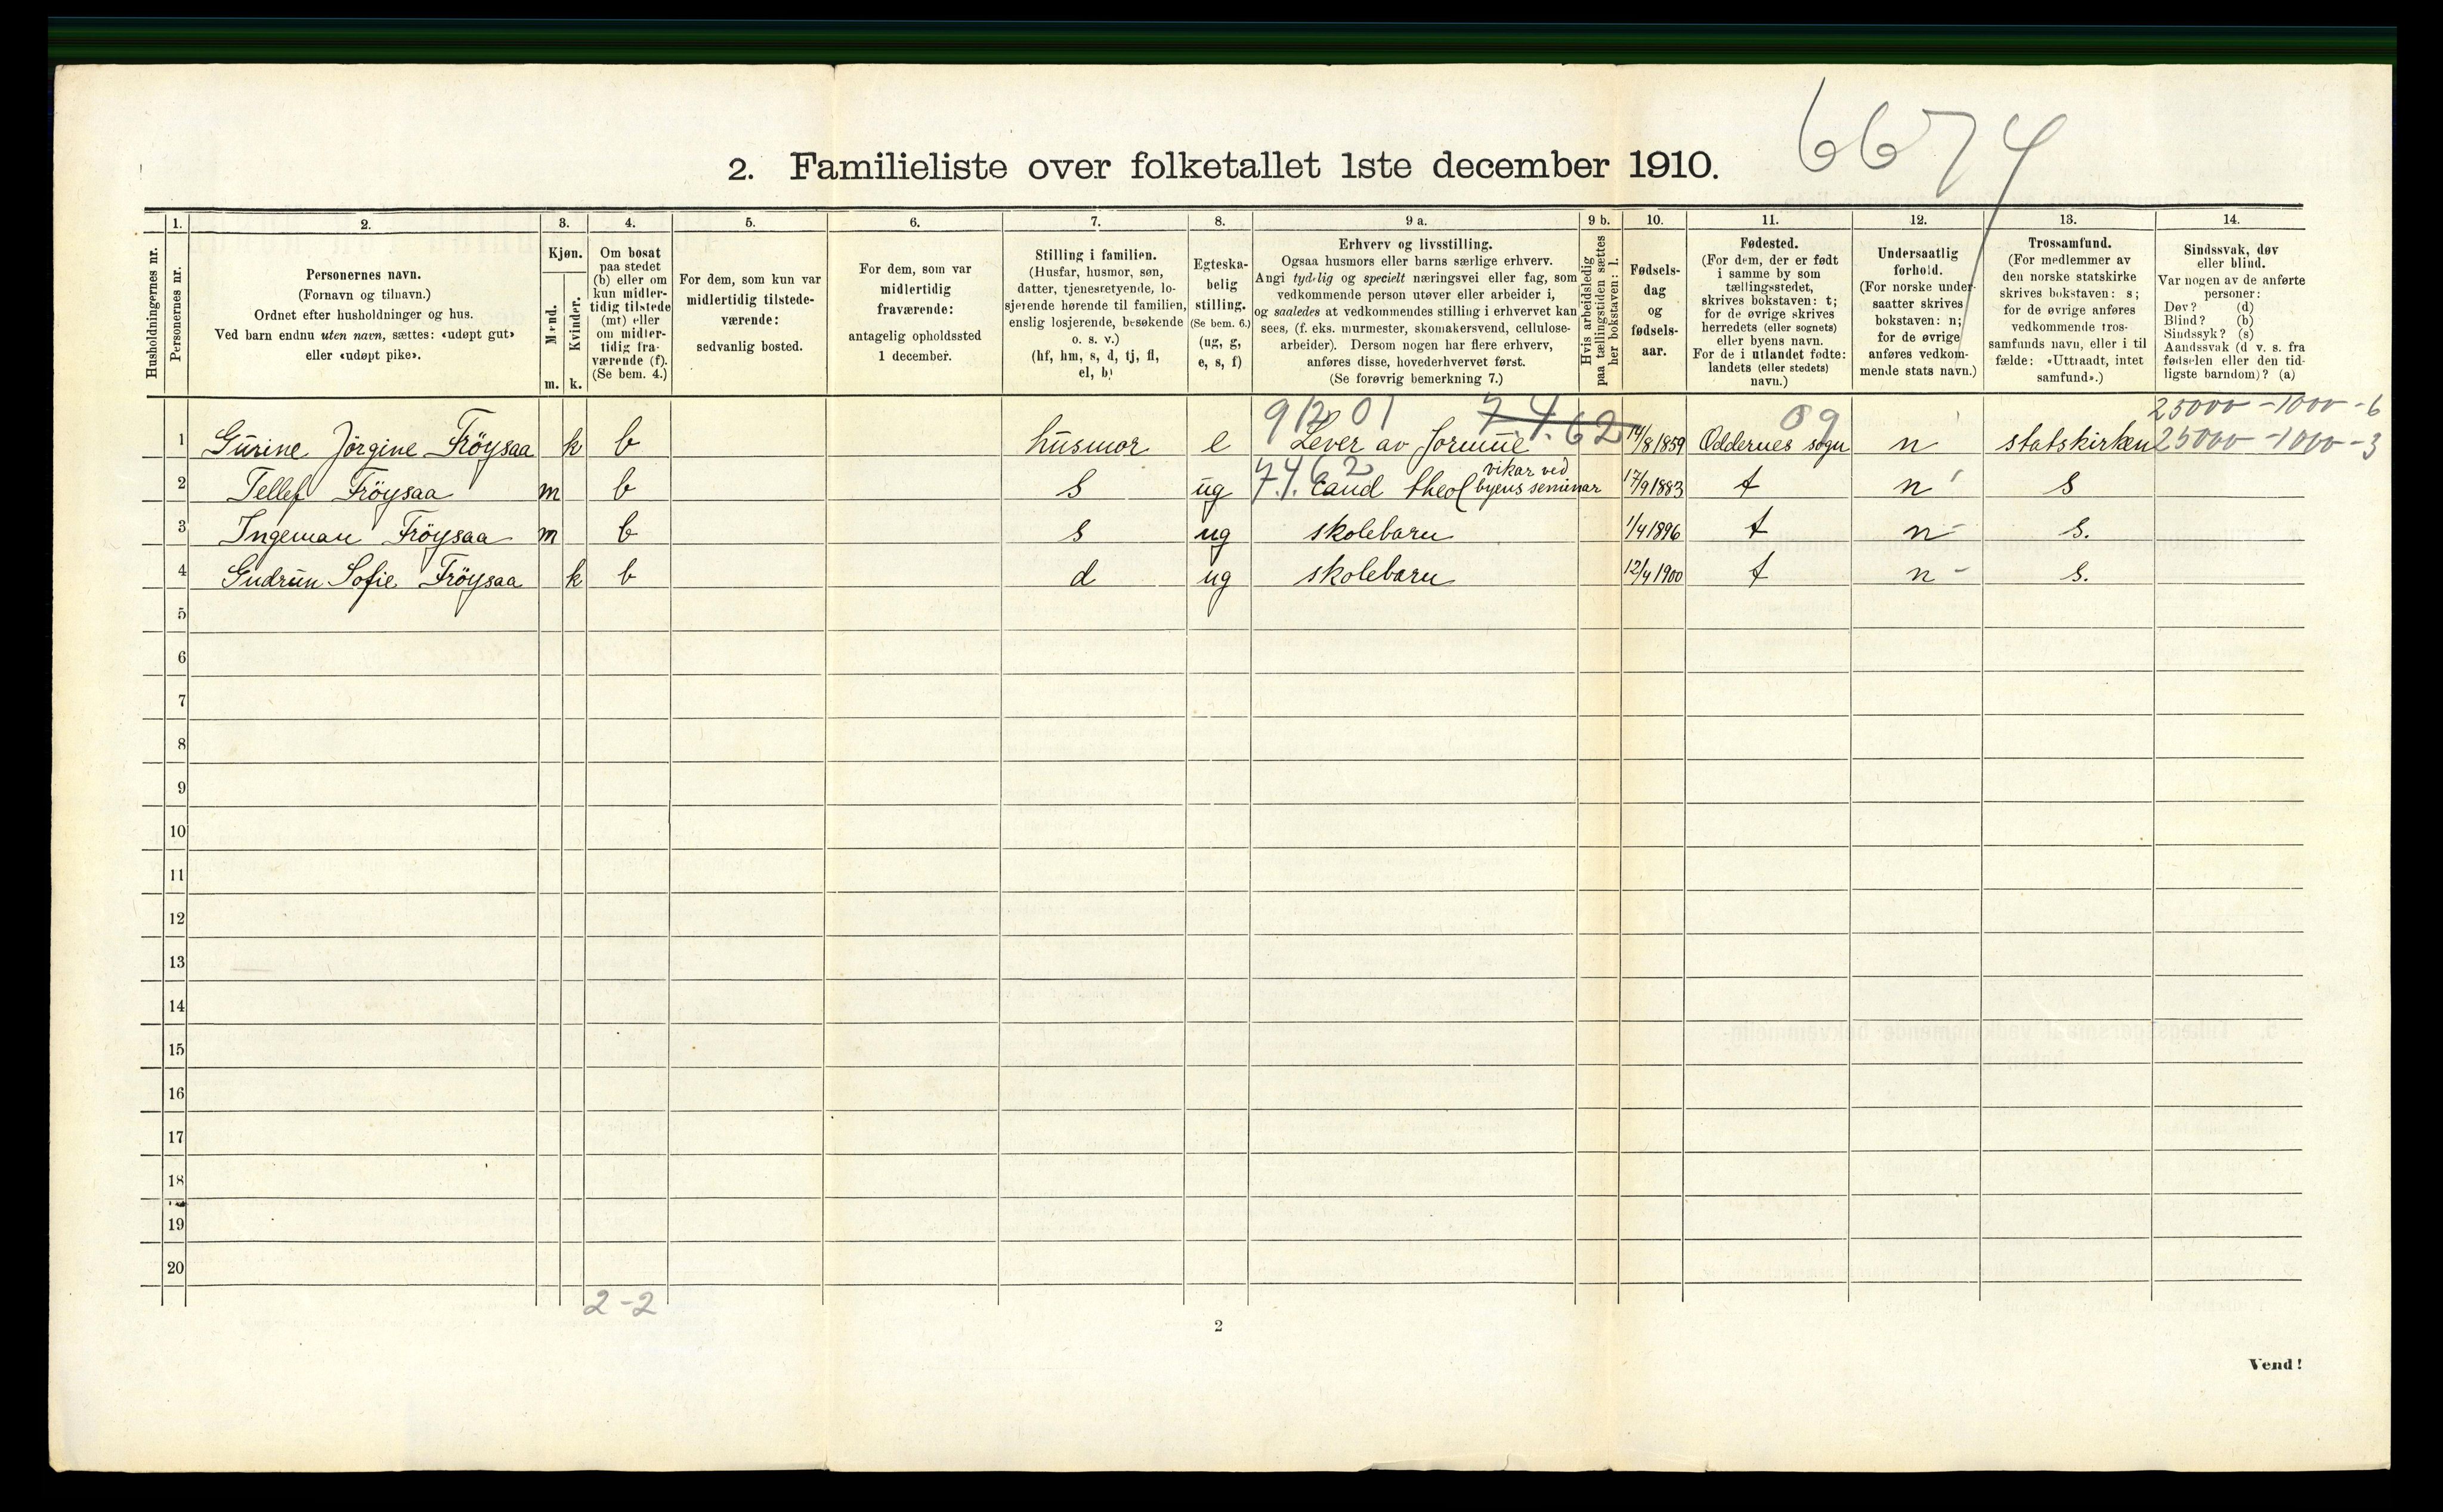 6674
2. Familieliste over folketallet 1ste december 1910.
Husholdningernes nr.
1. Personernes nr.
2. Personernes navn.
(Fornavn og tilnavn.)
Ordnet efter husholdninger og hus.
Ved barn endnu uten navn, sættes: «udøpt gut»
eller «udøpt pike».
3. Kjøn.
Mænd. m.
Kvinder. k.
4. Om bosat
paa stedet
(b) eller om
kun midler-
tidig tilstede
(mt) eller
om midler-
tidig fra-
værende (f).
(Se bem. 4.)
5. For dem, som kun var
midlertidig tilstede-
værende:
sedvanlig bosted.
6. For dem, som var
midlertidig
fraværende:
antagelig opholdssted
1 december.
7. Stilling i familien.
(Husfar, husmor, søn,
datter, tjenestetyende, lo-
sjerende hørende til familien,
enslig losjerende, besøkende
o. s. v.)
(hf, hm, s, d, tj, fl,
el, b)
8. Egteska-
belig
stilling.
(Se bem. 6.)
(ug, g,
e, s, f)
9 a. Erhverv og livsstilling.
Ogsaa husmors eller barns særlige erhverv.
Angi tydelig og specielt næringsvei eller fag, som
vedkommende person utøver eller arbeider i,
og saaledes at vedkommendes stilling i erhvervet kan
sees, (f. eks. murmester, skomakersvend, cellulose-
arbeider). Dersom nogen har flere erhverv,
anføres disse, hovederhvervet først.
(Se forøvrig bemerkning 7.)
9 b. Hvis arbeidsledig
paa tællingstiden sættes
her bokstaven: l.
10. Fødsels-
dag
og
fødsels-
aar.
11. Fødested.
(For dem, der er født
i samme by som
tællingsstedet,
skrives bokstaven: t;
for de øvrige skrives
herredets (eller sognets)
eller byens navn.
For de i utlandet fødte:
landets (eller stedets)
navn.)
12. Undersaatlig
forhold.
(For norske under-
saatter skrives
bokstaven: n;
for de øvrige
anføres vedkom-
mende stats navn.)
13. Trossamfund.
(For medlemmer av
den norske statskirke
skrives bokstaven: s;
for de øvrige anføres
vedkommende tros-
samfunds navn, eller i til
fælde: «Uttraadt, intet
samfund».)
14. Sindssvak, døv
eller blind.
Var nogen av de anførte
personer:
Døv? (d)
Blind? (b)
Sindssyk? (s)
Aandssvak (d v. s. fra
fødselen eller den tid-
ligste barndom)? (a)
7.4.62 09 25000 - 1000 - 6
1 Gurine Jörgine Fröysaa k b husmor e Lever av formue 14/8 1859 Oddernes sogn n statskirken 25000 - 1000 - 3
7.4.62 vikar ved
2 Tellef Fröysaa m b s ug Cand theol byens seminar 17/9 1883 t n s
3 Ingeman Fröysaa m b s ug skolebarn 1/4 1896 t n s.
4 Gudrun Sofie Fröysaa k b d ug skolebarn 12/4 1900 t n s.
5
6
7
8
9
10
11
12
13
14
15
16
17
18
19
20
2 - 2
2
Vend!